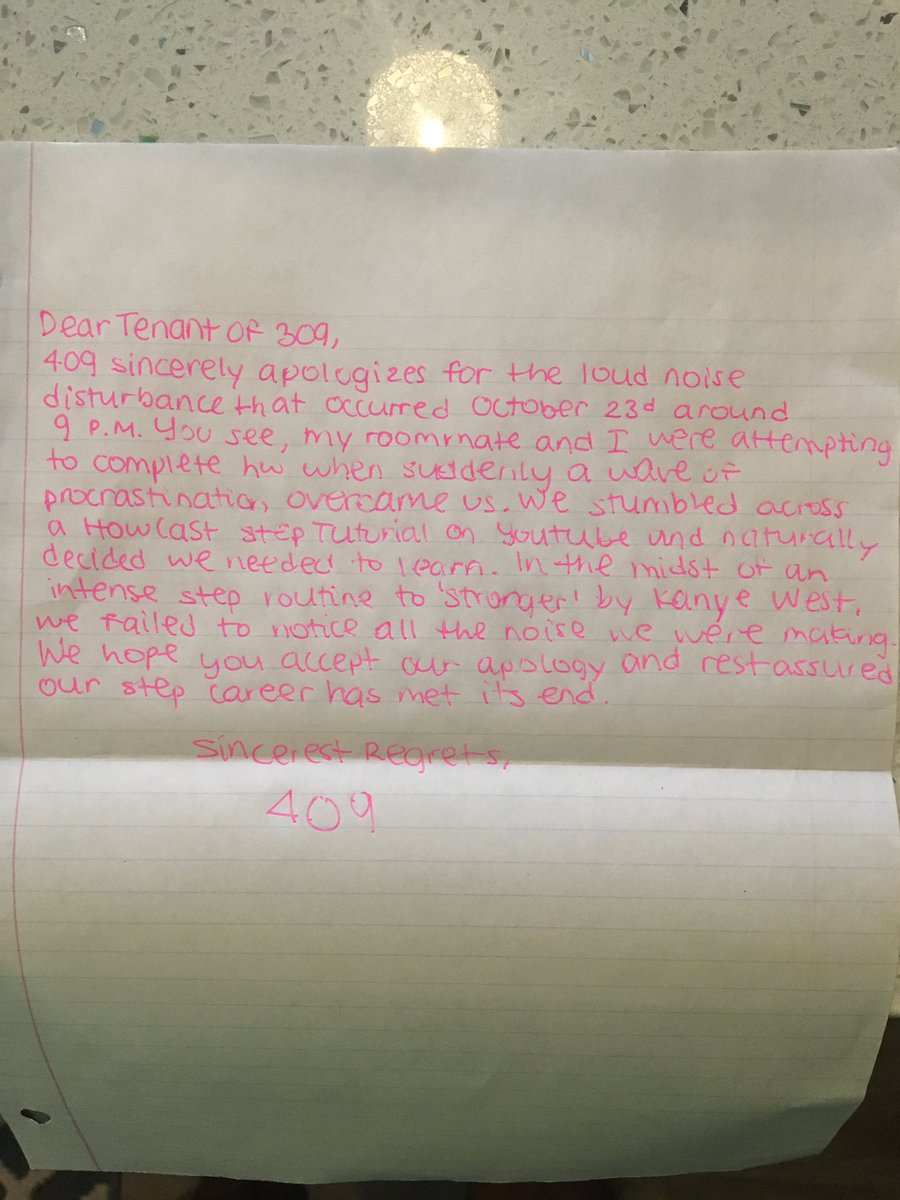 Dear Tenant of 309,
409 sincerely apologizes for the loud noise
disturbance that occurred October 23d around
9 P.M. You see, my roommate and I were attempting
to complete hw when suddenly a wave of
procrastination overcame us. We stumbled across
a Howcast step Tutorial on Youtube and naturally
decided we needed to learn. In the midst of an
intense step routine to 'stronger' by Kanye West,
we failed to notice all the noise we were making.
We hope you accept our apology and rest assured
our step career has met its end.
Sincerest Regrets,
409